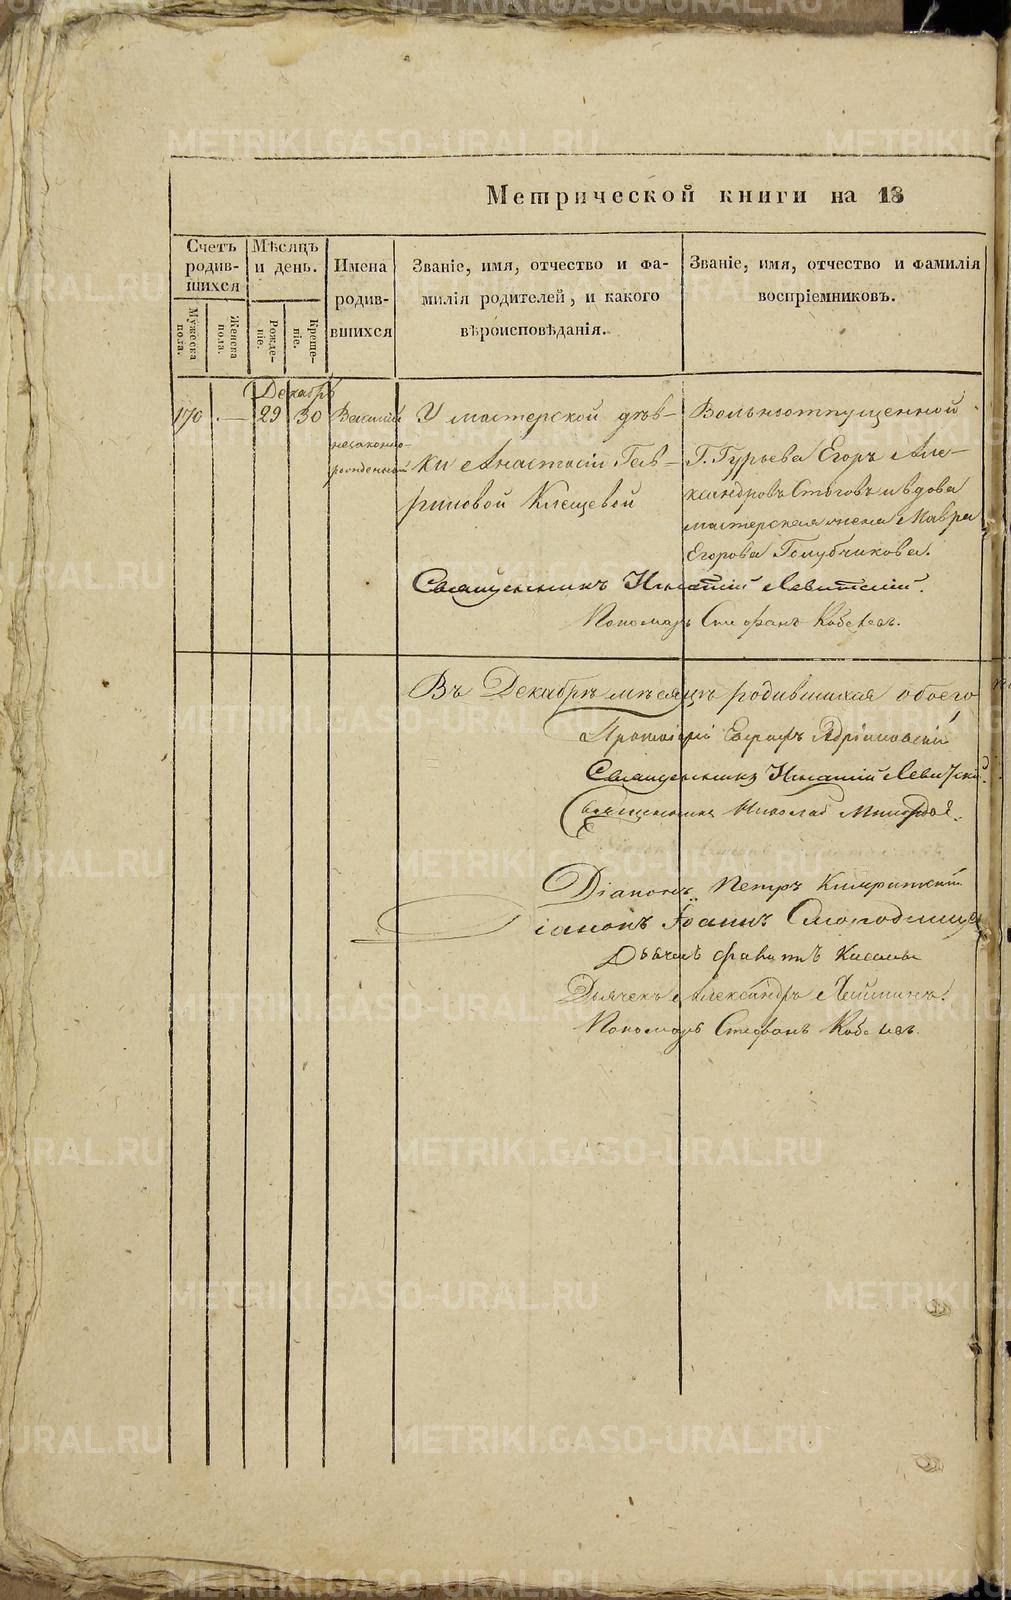 METRIKI.GASO-URAL.RU
Метрической книги на 18
Счетъ родившихся
Мѣсяцъ и день.
Имена родившихся
Званіе, имя, отчество и фамилія родителей, и какого вѣроисповѣданія.
Званіе, имя, отчество и фамилія воспріемниковъ.
Мужеска пола.
Женска пола.
Рожденіе.
Крещеніе.
Декабрь
170 — 29 30
незаконно-
рожденный
У мастерской дѣв-
ки Анастасіи Гав-
риловой Клещевой
Вольноотпущенной
Г. Гурьева Егоръ Але-
ксандровъ Стоговъ и вдова
мастерская жена Мавра
Егорова Голубчикова.
Священникъ Игнатій Левитскій.
Пономарь Стефанъ Кобелевъ.
Въ Декабрѣ мѣсяцѣ родившихся обоего
Протоіерей
Священникъ Игнатій Левитскій.
Священникъ Николай
Діаконъ Петръ
Діаконъ Іоаннъ
Дьячекъ Александръ
Пономарь Стефанъ Кобелевъ.